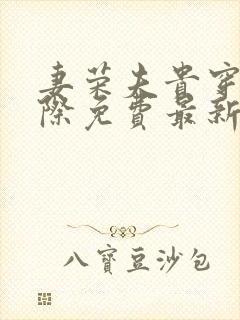 妻荣夫贵穿
际免费最新
八寶豆沙包